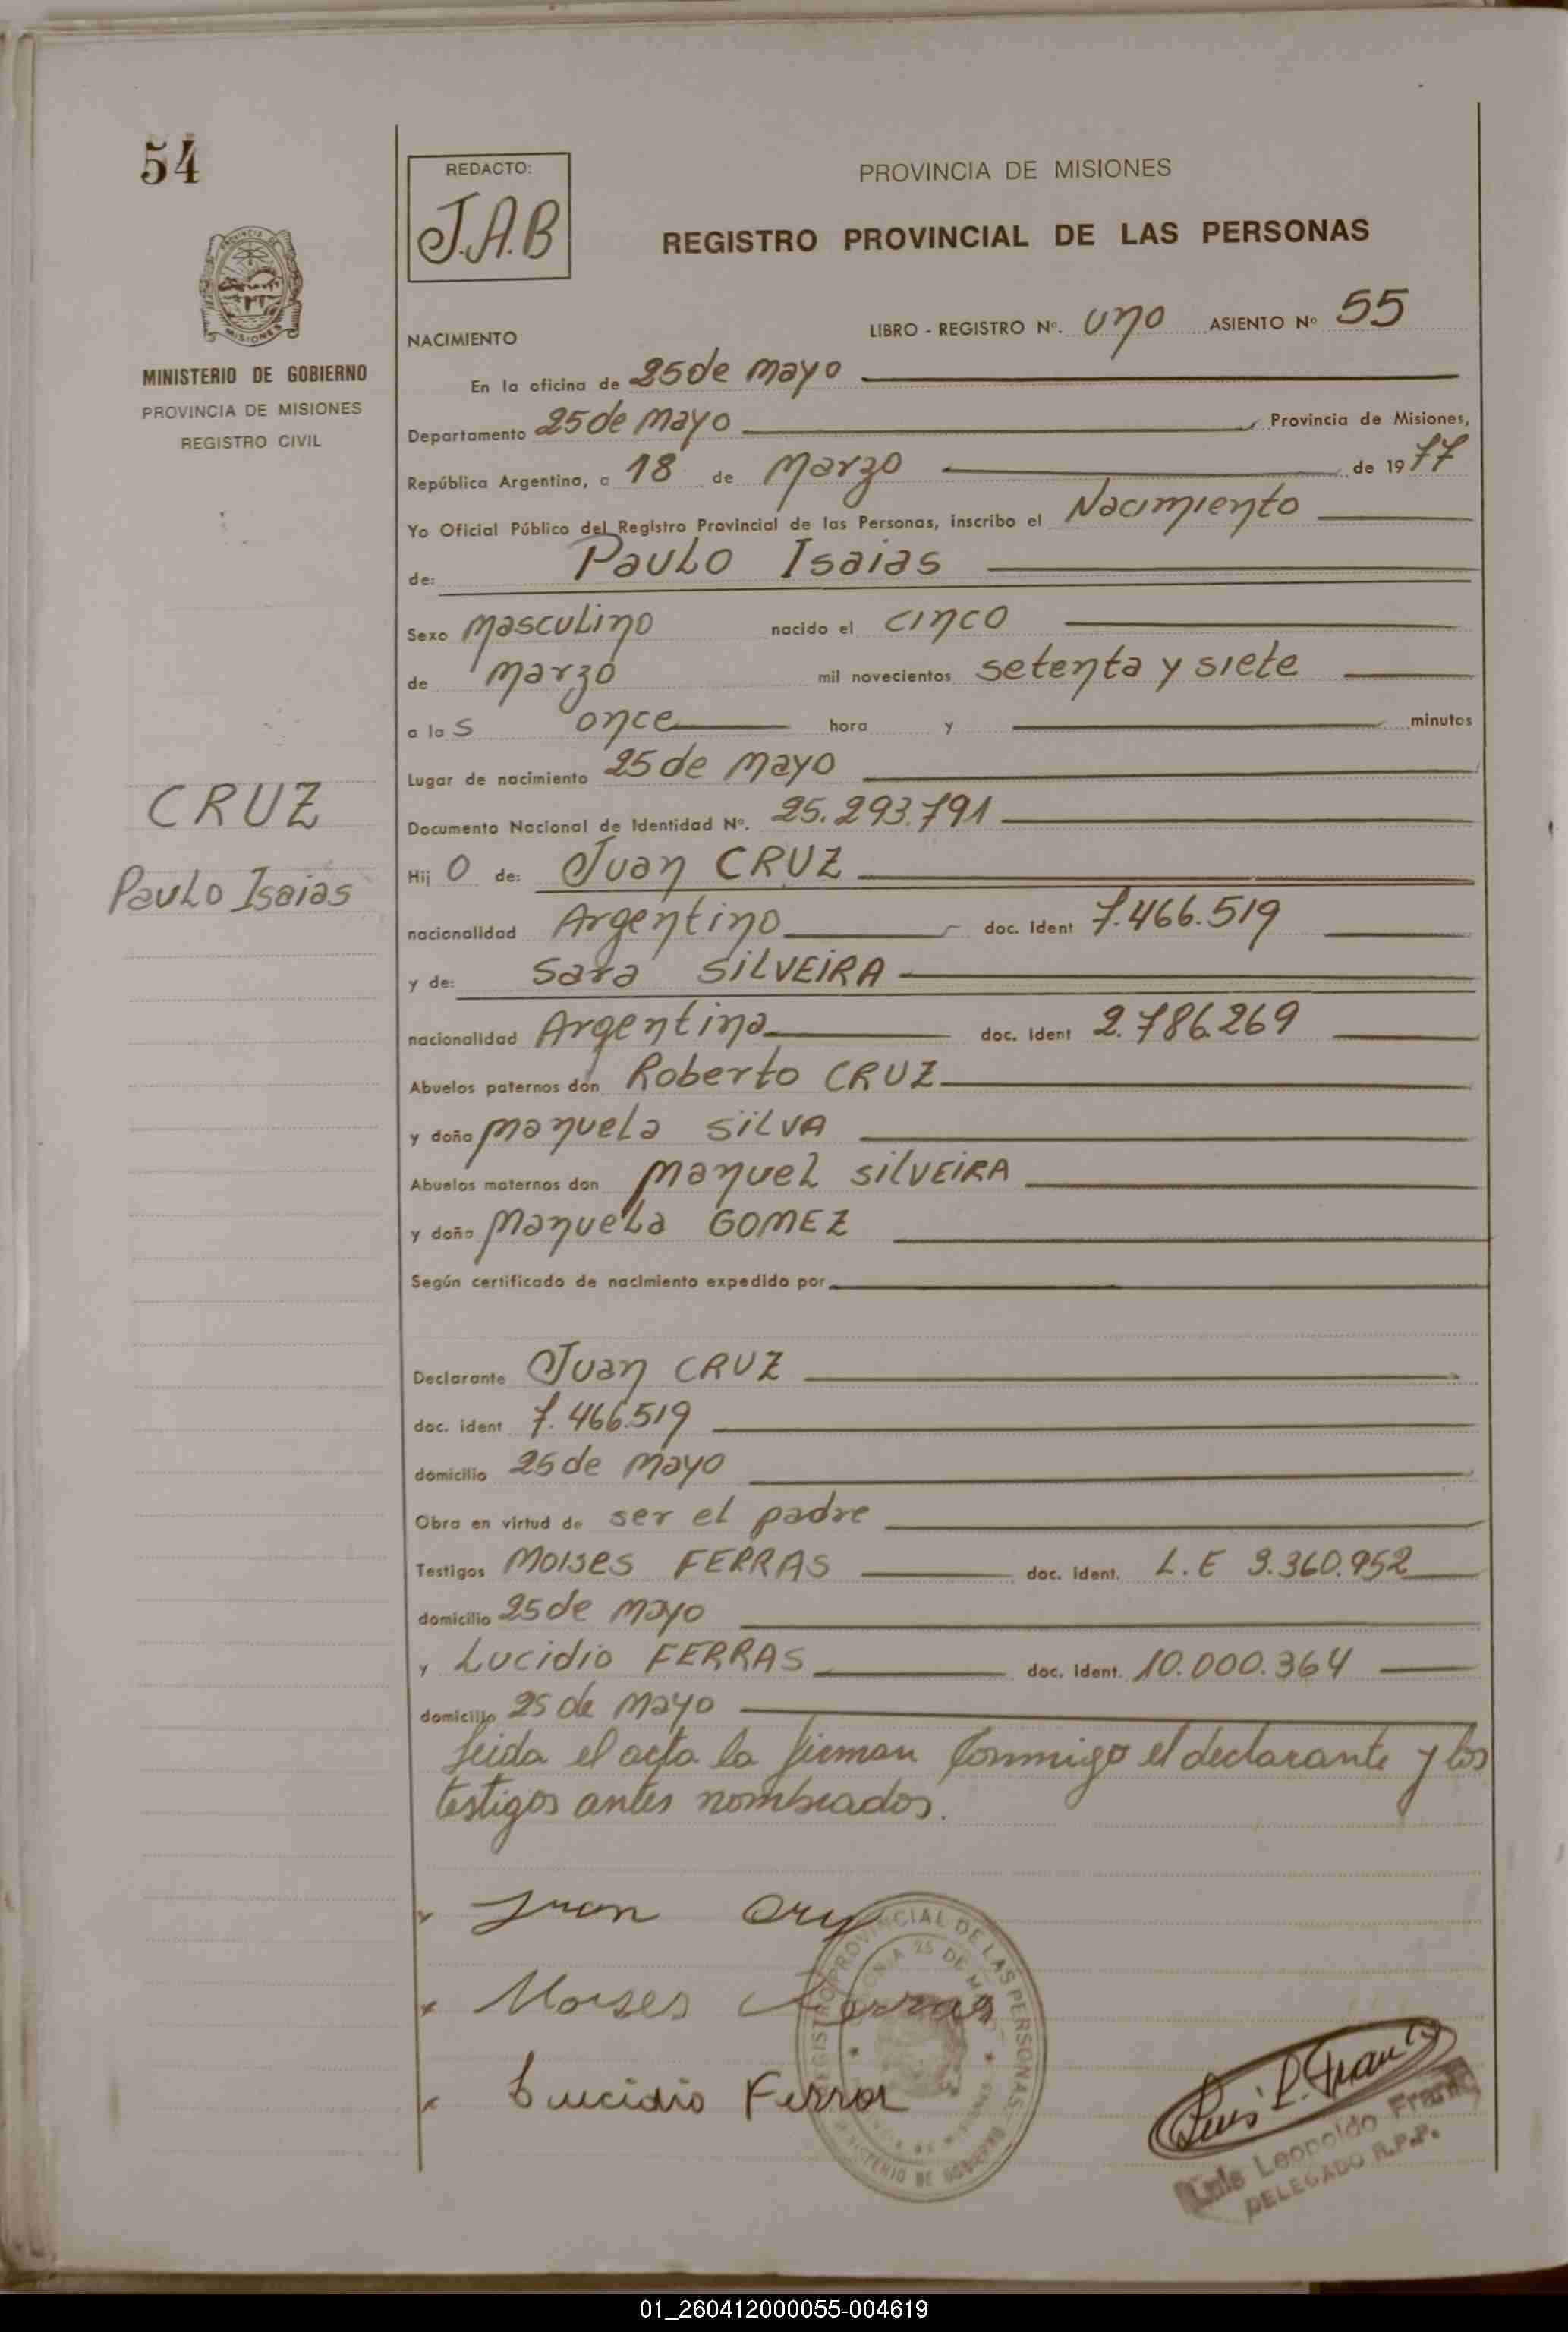 54
REDACTO:
J.A.B
PROVINCIA DE MISIONES
REGISTRO PROVINCIAL DE LAS PERSONAS
PROVINCIA DE
MISIONES
MINISTERIO DE GOBIERNO
PROVINCIA DE MISIONES
REGISTRO CIVIL
NACIMIENTO LIBRO - REGISTRO Nº. uno ASIENTO Nº 55
En la oficina de 25 de mayo
Departamento 25 de mayo, Provincia de Misiones,
República Argentina, a 18 de Marzo de 1977
Yo Oficial Público del Registro Provincial de las Personas, inscribo el Nacimiento
de: Paulo Isaias
Sexo masculino nacido el cinco
de marzo mil novecientos setenta y siete
a las once hora y minutos
Lugar de nacimiento 25 de mayo
CRUZ
Paulo Isaias
Documento Nacional de Identidad Nº. 25.293.791
Hijo de: Juan CRUZ
nacionalidad Argentino doc. Ident 7.466.519
y de: Sara SILVEIRA
nacionalidad Argentina doc. Ident 2.786.269
Abuelos paternos don Roberto CRUZ
y doña manuela SILVA
Abuelos maternos don manuel SILVEIRA
y doña Manuela GOMEZ
Según certificado de nacimiento expedido por
Declarante Juan CRUZ
doc. ident 7.466.519
domicilio 25 de mayo
Obra en virtud de ser el padre
Testigos Moises FERRAS doc. ident. L.E 3.360.952
domicilio 25 de mayo
y Lucidio FERRAS doc. Ident. 10.000.364
domicilio 25 de mayo
Leida el acta la firman conmigo el declarante y los
testigos antes nombrados.
Juan Cruz
Moises Ferras
Lucidio Ferras
REGISTRO PROVINCIAL DE LAS PERSONAS
25 DE MAYO
MINISTERIO DE GOBIERNO
Luis L. Frank
Luis Leopoldo Frank
DELEGADO R.P.P.
01_260412000055-004619